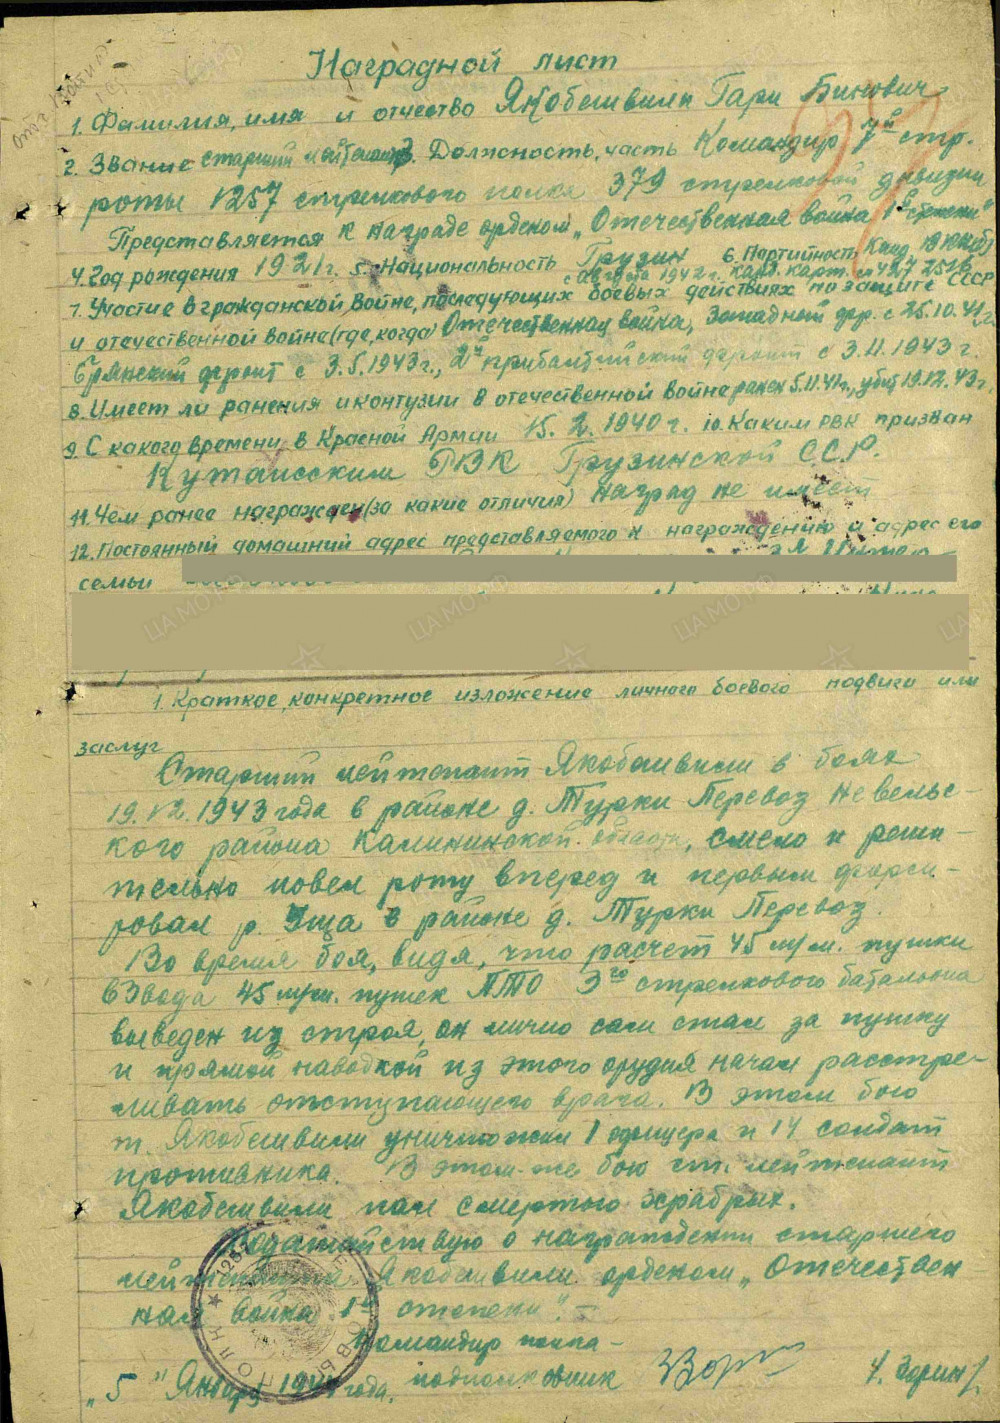 Наградной лист
1. Фамилия, имя и отчество Якобешвили Гари Бинович
2. Звание старший лейтенант 3. Должность, часть Командир 7й стр.
роты 1257 стрелкового полка 379 стрелковой дивизии
Представляется к награде орденом „Отечественная война 1й степени"
4. Год рождения 1921 г. 5. Национальность Грузин 6. Партийность Канд ВКП(б)
с августа 1942 г. канд. карт.
7. Участие в гражданской войне, последующих боевых действиях по защите СССР
и отечественной войне (где, когда) Отечественная война, Западный фр. с 25.10.41 г.
Брянский фронт с 3.5.1943 г., 2й прибалтийский фронт с 3.11.1943 г.
8. Имеет ли ранения и контузии в отечественной войне ранен 5.11.41 г., убит 19.12.43 г.
9. С какого времени в Красной Армии 15.2.1940 г. 10. Каким РВК призван
Кутаисским РВК Грузинской С.С.Р.
11. Чем ранее награжден (за какие отличия) наград не имеет
12. Постоянный домашний адрес представляемого к награждению и адрес его
семьи
1. Краткое, конкретное изложение личного боевого подвига или
заслуг
Старший лейтенант Якобешвили в боях
19.12.1943 года в районе д. Турки Перевоз Невельс-
кого района Калининской области, смело и реши-
тельно повел роту вперед и первым форси-
ровал р. Уща в районе д. Турки Перевоз.
Во время боя, видя, что расчет 45 м/м. пушки
взвода 45 м/м. пушек ПТО 3го стрелкового батальона
выведен из строя, он лично сам стал за пушку
и прямой наводкой из этого орудия начал расстре-
ливать отступающего врага. В этом бою
т. Якобешвили уничтожил 1 офицера и 14 солдат
противника. В этом-же бою ст. лейтенант
Якобешвили пал смертью храбрых.
Ходатайствую о награждении старшего
лейтенанта Якобешвили орденом „Отечествен
ная война 1й степени". –
Командир полка –
подполковник Зорин
„5" Января 1944 года.